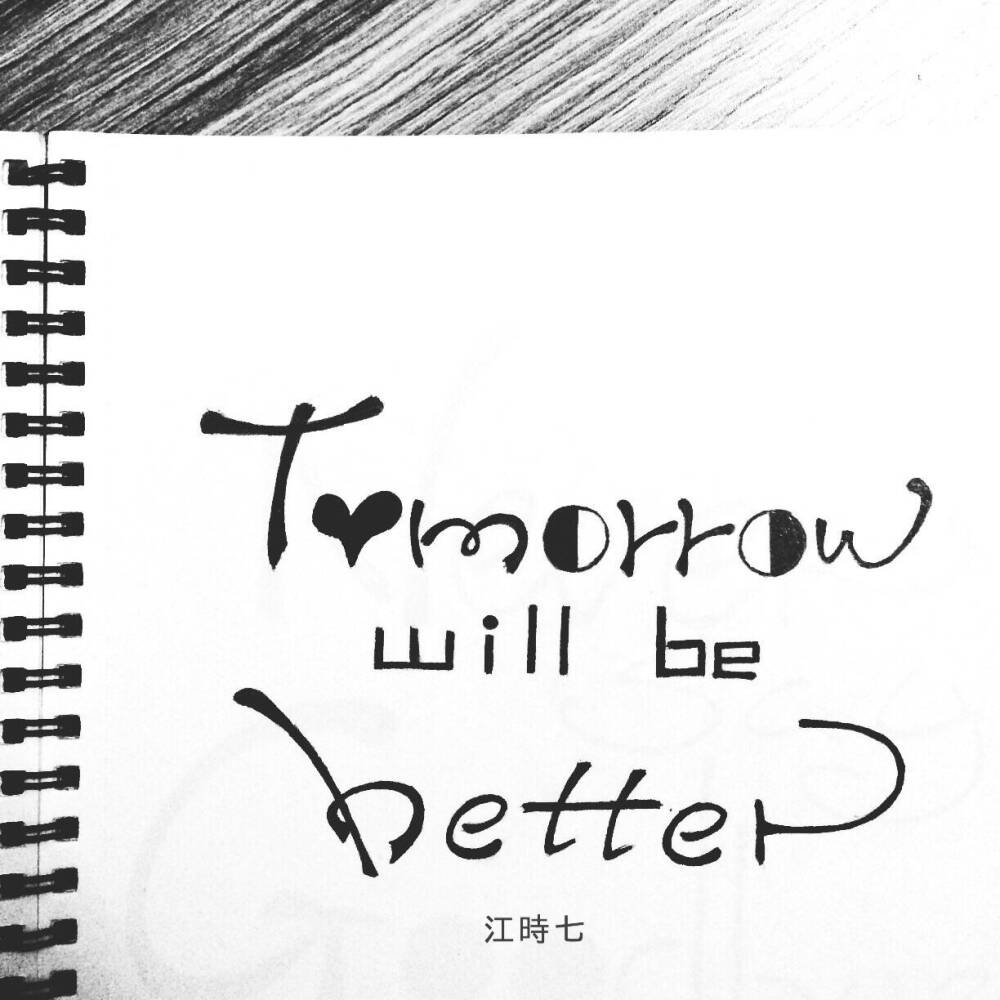 Tomorrow
will be
better
江時七